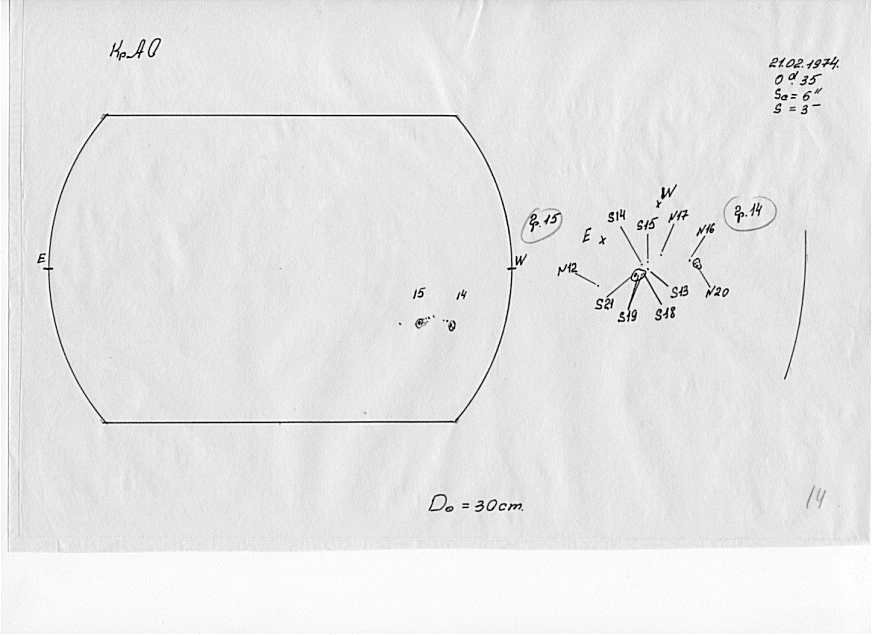 КрАО
21.02.1974.
0ᵈ.35
S⊙ = 6"
S = 3
W
гр.15
S14
S15
N17
гр.14
E
N16
E
W
N12
S13
N20
15
14
S21
S19
S18
D⊙ = 30cm.
14